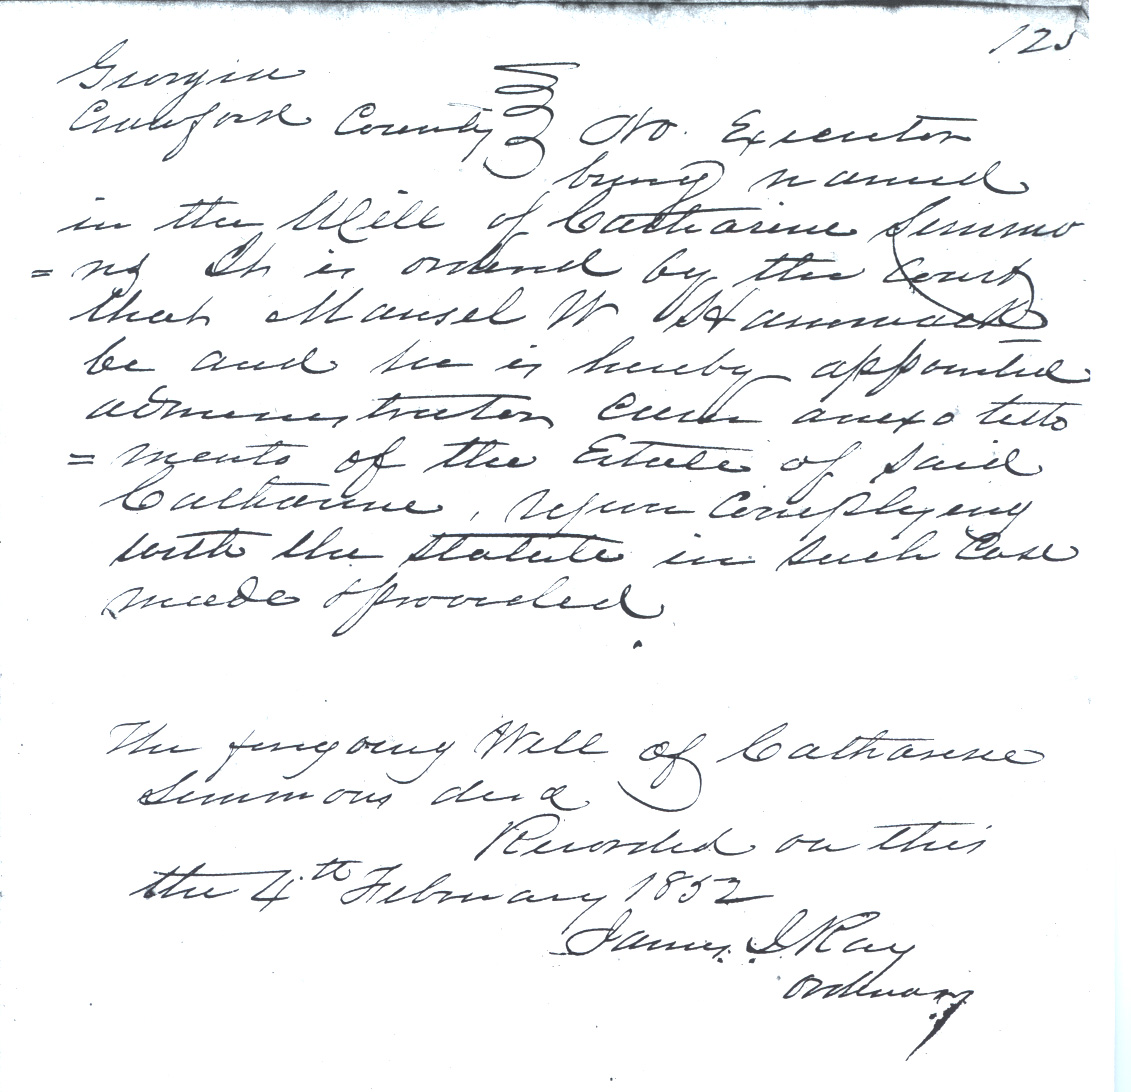 125
Georgia
Crawford County No. Executor
being named
in the Will of Catharine Simmo
= ns It is ordered by the Court
that Mansel W Hammack
be and he is hereby appointed
administrator cum anexo testa
= mento of the Estate of said
Catharine, upon complying
with the statute in such Case
made & provided.
The foregoing Will of Catharine
Simmons decd
Recorded on this
the 4th February 1852
James J Ray
Ordinary